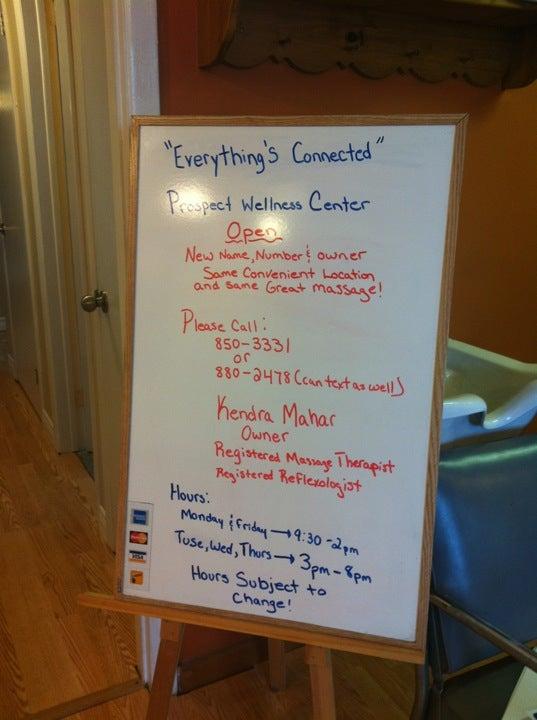 "Everything's Connected"
Prospect Wellness Center
Open
New Name, Number & owner
Same Convenient Location
and same Great massage!
Please Call:
850-3331
or
880-2478 (can text as well)
Kendra Mahar
Owner
Registered Massage Therapist
Registered Reflexologist
Hours:
Monday & Friday → 9:30 - 2pm
Tuse, Wed, Thurs → 3pm - 8pm
Hours Subject to
Change!
MasterCard
VISA